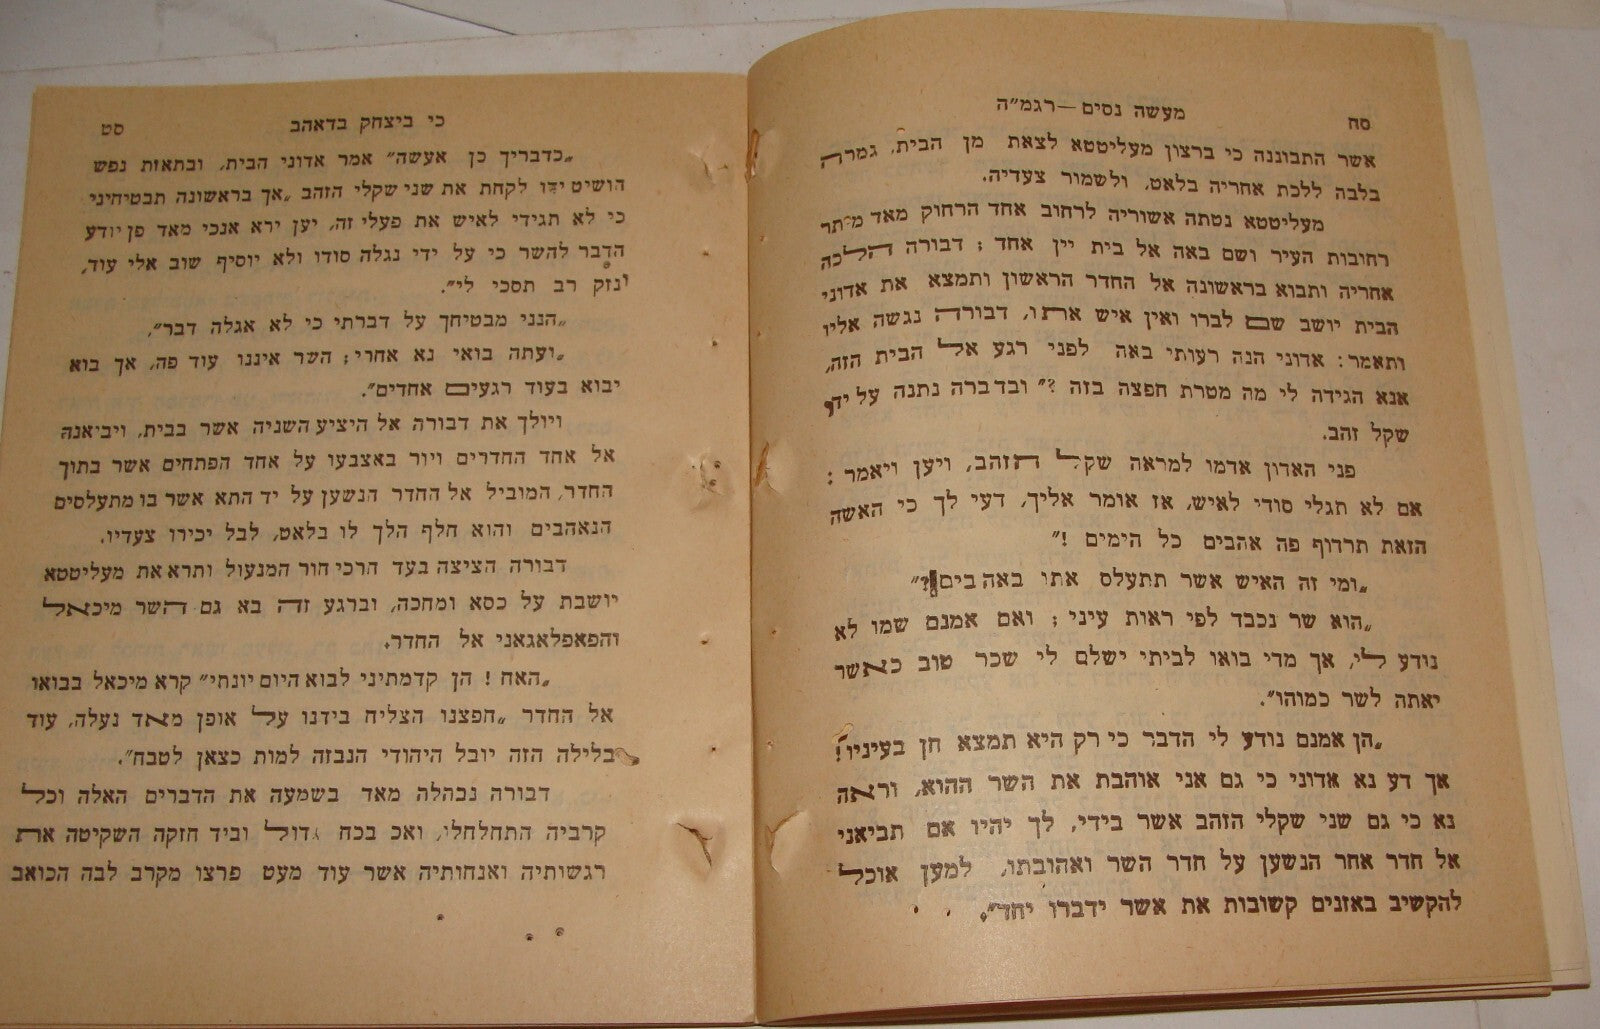 סח
מעשה נסים — רגמ״ה
אשר התבוננה כי ברצון מעליטטא לצאת מן הבית, גמרה
בלבה ללכת אחריה בלאט, ולשמור צעדיה.
מעליטטא נטתה אשוריה לרחוב אחד הרחוק מאד מיתר
רחובות העיר ושם באה אל בית יין אחד; דבורה הלכה
אחריה ותבוא בראשונה אל החדר הראשון ותמצא את אדוני
הבית יושב שם לברו ואין איש אתו, דבורה נגשה אליו
ותאמר: אדוני הנה רעותי באה לפני רגע אל הבית הזה,
אנא הגידה לי מה מטרת חפצה בזה ?״ ובדברה נתנה על ידו
שקל זהב.
פני האדון אדמו למראה שקל הזהב, ויען ויאמר:
אם לא תגלי סודי לאיש, אז אומר אליך, דעי לך כי האשה
הזאת תרדוף פה אהבים כל הימים !״
„ומי זה האיש אשר תתעלס אתו באהבים?״
„הוא שר נכבד לפי ראות עיני; ואם אמנם שמו לא
נודע לי, אך מדי בואו לביתי ישלם לי שכר טוב כאשר
יאתה לשר כמוהו״.
„הן אמנם נודע לי הדבר כי רק היא תמצא חן בעיניו!
אך דע נא אדוני כי גם אני אוהבת את השר ההוא, וראה
נא כי גם שני שקלי הזהב אשר בידי, לך יהיו אם תביאני
אל חדר אחר הנשען על חדר השר ואהובתו, למען אוכל
להקשיב באזנים קשובות את אשר ידברו יחד״.
כי ביצחק בדאהב
סט
„כדבריך כן אעשה״ אמר אדוני הבית, ובתאות נפש
הושיט ידו לקחת את שני שקלי הזהב „אך בראשונה תבטיחיני
כי לא תגידי לאיש את פעלי זה, יען ירא אנכי מאד פן יודע
הדבר להשר כי על ידי נגלה סודו ולא יוסיף שוב אלי עוד,
ונזק רב תסכי לי״.
„הנני מבטיחך על דברתי כי לא אגלה דבר״,
„ועתה בואי נא אחרי; השר איננו עוד פה, אך בוא
יבוא בעוד רגעים אחדים״.
ויולך את דבורה אל היציע השניה אשר בבית, ויביאנה
אל אחד החדרים ויור באצבעו על אחד הפתחים אשר בתוך
החדר, המוביל אל החדר הנשען על יד התא אשר בו מתעלסים
הנאהבים והוא חלף הלך לו בלאט, לבל יכירו צעדיו.
דבורה הציצה בעד הרכי חור המנעול ותרא את מעליטטא
יושבת על כסא ומחכה, וברגע זה בא גם השר מיכאל
והפאפלאגאני אל החדר.
„האח ! הן קדמתיני לבוא היום יונתי״ קרא מיכאל בבואו
אל החדר „חפצנו הצליח בידנו על אופן מאד נעלה, עוד
בלילה הזה יובל היהודי הנבזה למות כצאן לטבח״.
דבורה נבהלה מאד בשמעה את הדברים האלה וכל
קרביה התחלחלו, ואכ בכח גדול וביד חזקה השקיטה את
רגשותיה ואנחותיה אשר עוד מעט פרצו מקרב לבה הכואב